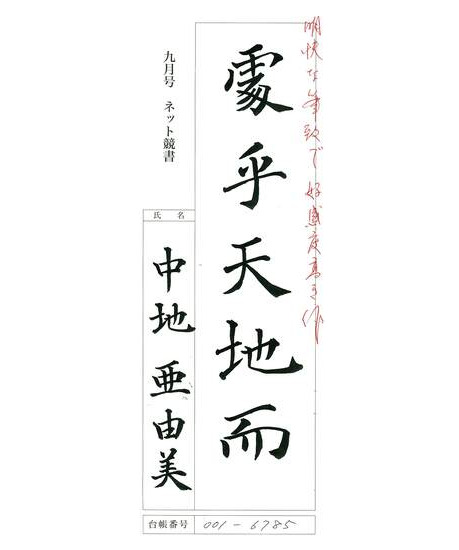 明快な筆致で 好感度高き作
處乎天地而
九月号 ネット競書
氏名
中地 亜由美
台帳番号 001-6785